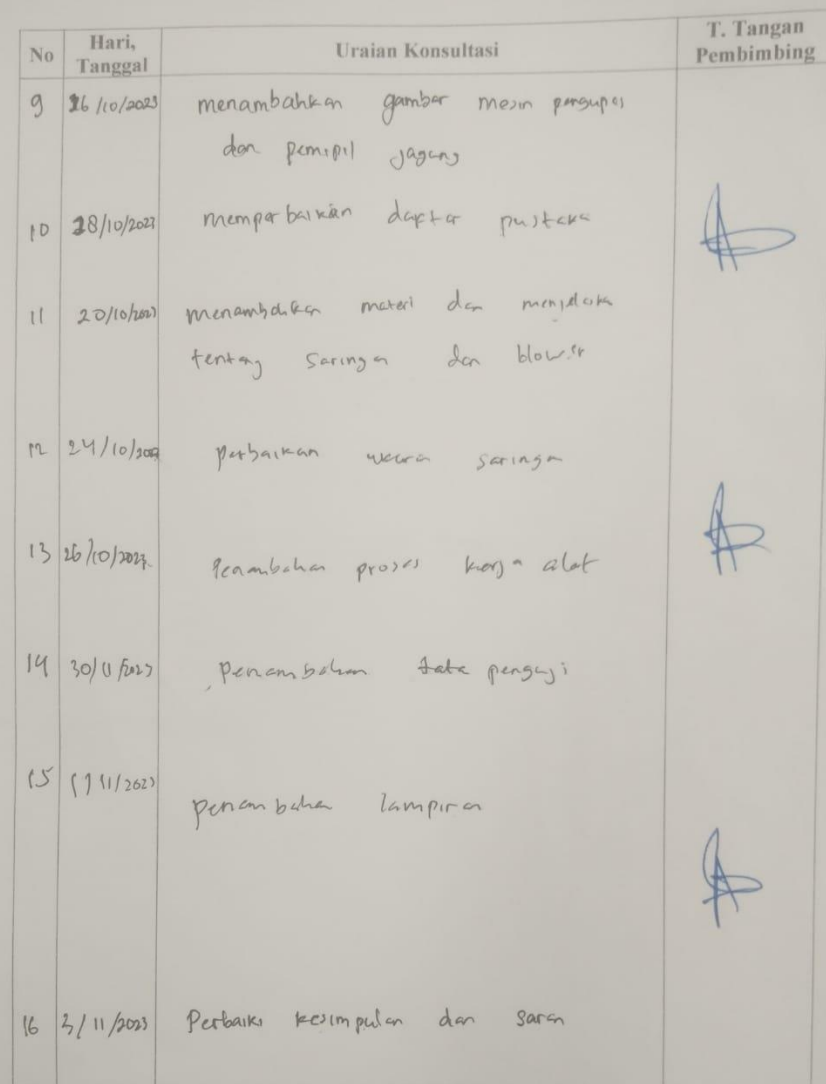 No Hari, Tanggal Uraian Konsultasi T. Tangan Pembimbing
9 16/10/2023 menambahkan gambar mesin pengupas
dan pemipil jagung
10 18/10/2023 memperbaikan daftar pustaka
11 20/10/2023 menambahkan materi dan
tentang saringan dan blower
12 24/10/2023 perbaikan saringan
13 26/10/2023 Penambahan proses kerja alat
14 penambahan penguji
15 penambahan lampiran
16 3/11/2023 Perbaiki kesimpulan dan saran